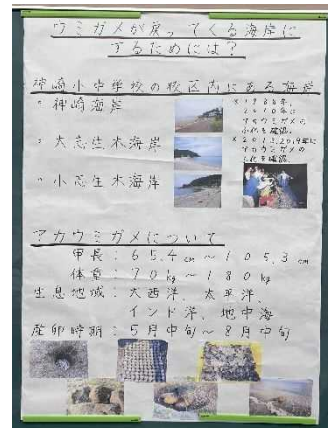 ウミガメが戻ってくる海岸に
するためには？
神崎小中学校の校区内にある海岸
・神崎海岸
※1988年、
2010年に
アカウミガメの
ふ化を確認。
・大志生木海岸
※2012,2019年に
アカウミガメの
ふ化を確認。
・小志生木海岸
アカウミガメについて
甲長：65.4cm～105.3cm
体重：70kg～180kg
生息地域：大西洋、太平洋、
インド洋、地中海
産卵時期：5月中旬～8月中旬